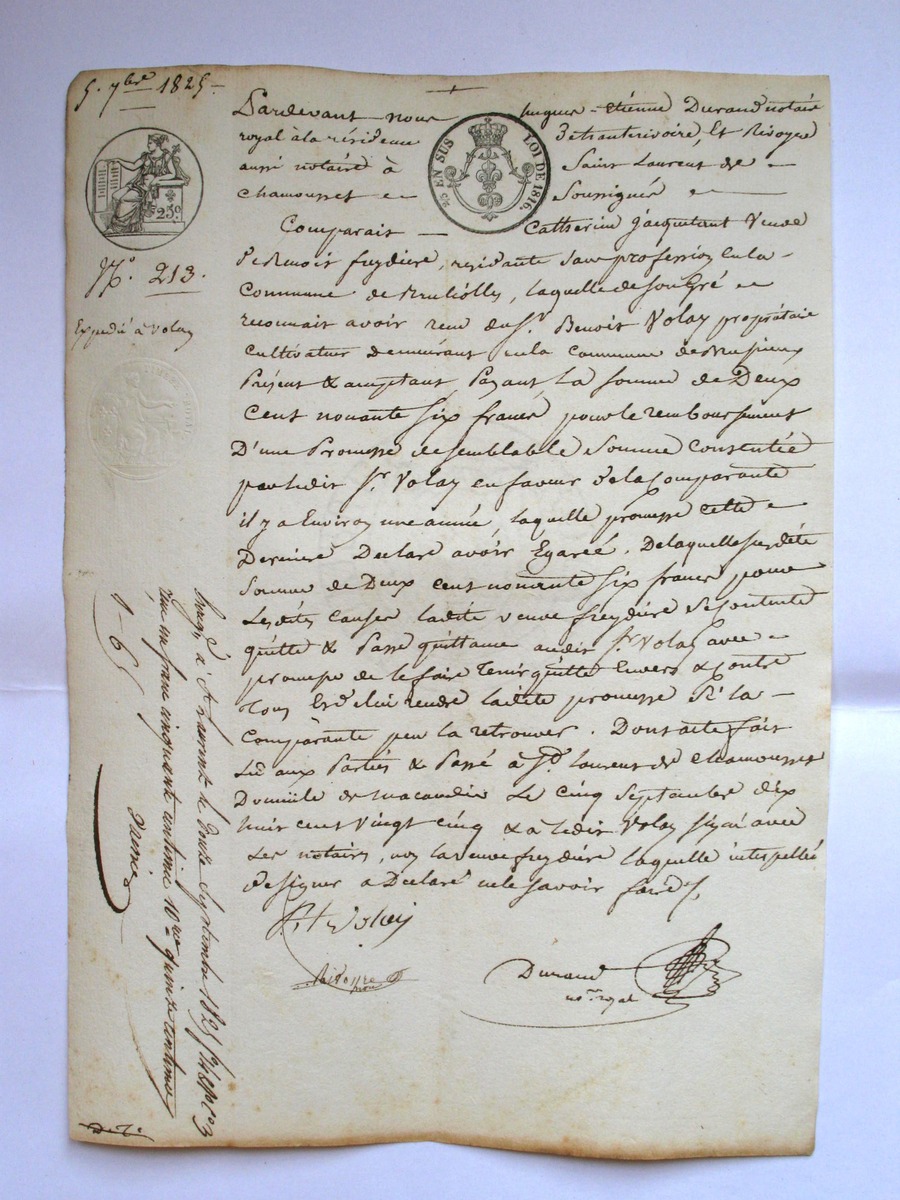 5. 7bre 1825
Pardevant nous hugues Etienne Durand notaire
royal à la résidence d'entendessoire, Et Risoyre
aussi notaire à Saint Laurent de
chamousset Soussigné
EN SUS LOI DE 1816.
25c
Comparait Catherine Jacquetant Veuve
de Benoit freydière, residante sans profession en la
Commune de Brulolles, laquelle de son Gré
reconnait avoir recu du Sr. Benoit Volay propriétaire
cultivateur demeurant en la commune de
Présent & acceptant, Payant la somme de Deux
Cent nonante Six francs pour le remboursement
D'une Promesse de semblable somme Consentée
par ledit Sr. Volay en faveur de la Comparante
il y a Environ une année, laquelle promesse cette
Derniere Declare avoir Egareé. De laquelle susdite
Somme de Deux cent nonante Six francs pour
Lesdites causes ladite veuve freydière Se contente
quitte & Passe quittance audit Sr. Volay avec
promesse de le faire Tenir quitte Envers & Contre
Tous Et de lui rendre ladite promesse Si la
Comparante peu la retrouver. Dont acte fait
Lu aux Parties & Passé à St. Laurent de Chamousset
Domicile de Le Cinq Septembre dix
huit cent vingt cinq & a ledit Volay Signé avec
Les notaires, non la veuve freydière laquelle interpellée
de signer a Déclaré ne le savoir faire
Volay
Durand
nore. royal
No. 213.
Expedié à Volay
Enregé. à St Laurent le Douze Septembre 1825
reçu un franc cinquante centimes 10me quinze centimes
1-65